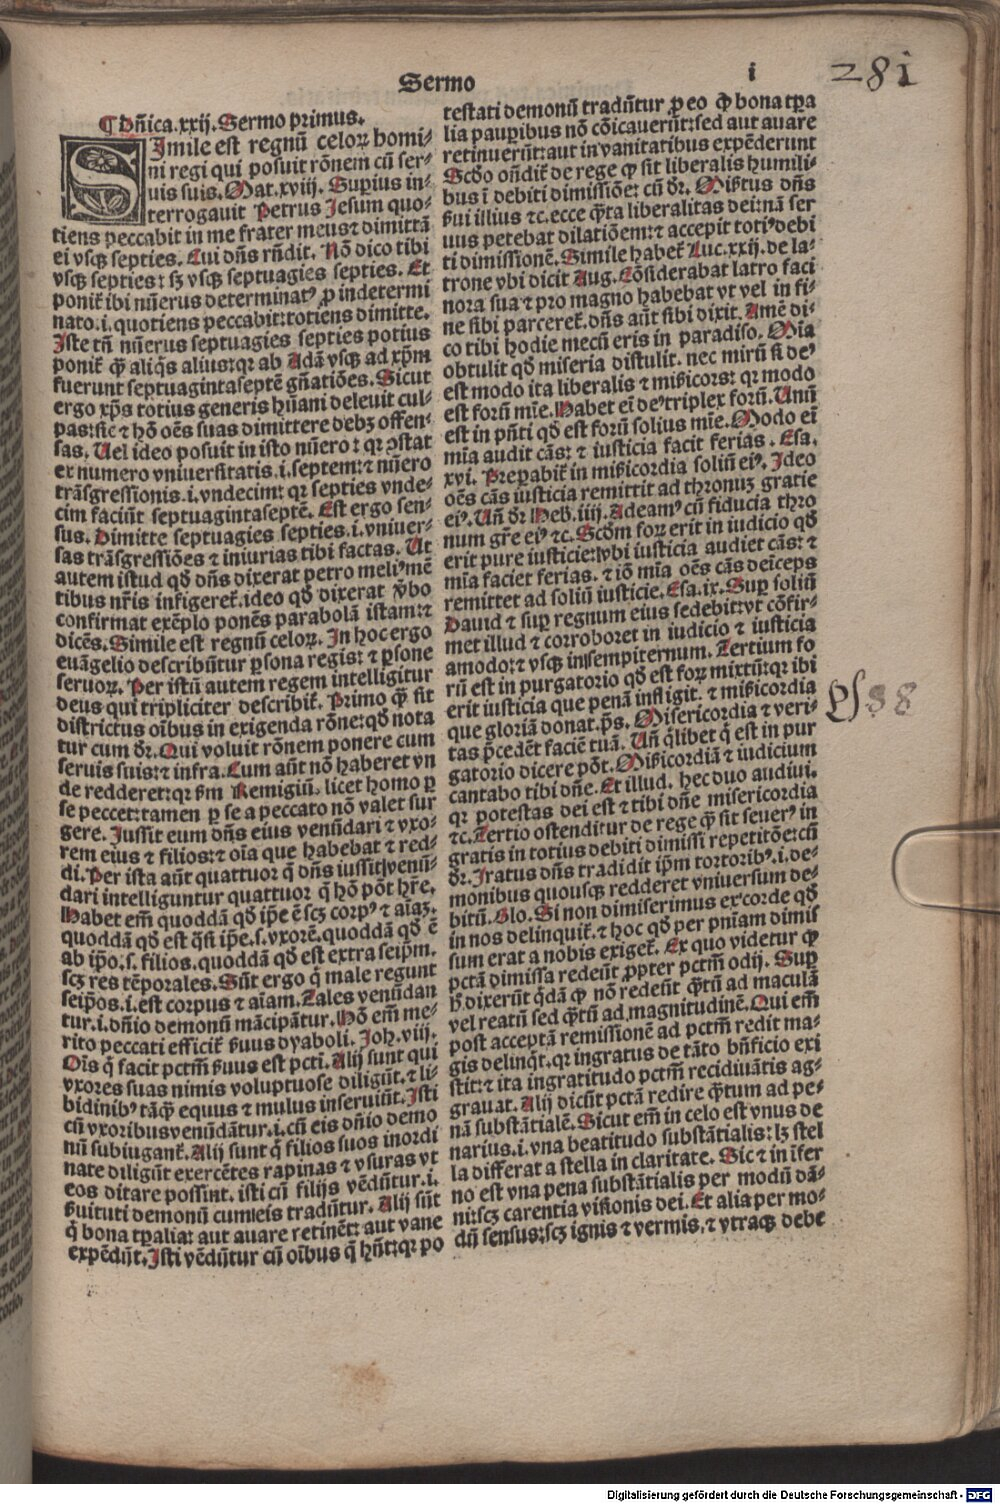 Sermo
i
281
¶ Dn̄ica.xxij. Sermo primus.
SImile est regnū celoꝝ homi-
ni regi qui posuit rōnem cū ser-
uis suis. Mat.xviij. Supius in-
terrogauit Petrus Jesum quo-
tiens peccabit in me frater meus ⁊ dimittā
ei vsqꝫ septies. Cui dn̄s rn̄dit. Nō dico tibi
vsqꝫ septies: sꝫ vsqꝫ septuagies septies. Et
ponit᷑ ibi nūerus determinatꝰ ꝓ indetermi
nato.i. quotiens peccabit: totiens dimitte.
Iste tn̄ nūerus septuagies septies potius
ponit᷑ ꝙ̄ aliq̄s alius: qꝛ ab Adā vsqꝫ ad xp̄m
fuerunt septuagintaseptē gn̄atiōes. Sicut
ergo xp̄s totius generis hūani deleuit cul-
pas: sic ⁊ hō oēs suas dimittere debꝫ offen-
sas. Uel ideo posuit in isto nūero: qꝛ ꝯstat
ex numero vniuersitatis.i. septem: ⁊ nūero
trāsgressionis.i. vndecim: qꝛ septies vnde-
cim faciūt septuagintaseptē. Est ergo sen-
sus. Dimitte septuagies septies.i. vniuer-
sas trāsgressiōes ⁊ iniurias tibi factas. Ut
autem istud qd̄ dn̄s dixerat petro meliꝰ mē
tibus nr̄is infigeret᷑. ideo qd̄ dixerat v̄bo
confirmat exēplo ponēs parabolā istam: ⁊
dicēs. Simile est regnū celoꝝ. In hoc ergo
euāgelio describūtur ꝑsona regis: ⁊ ꝑsone
seruoꝝ. Per istū autem regem intelligitur
deus qui tripliciter describit᷑. Primo ꝙ̄ sit
districtus oībus in exigenda rōne: qd̄ nota
tur cum dr̄. Qui voluit rōnem ponere cum
seruis suis: ⁊ infra. Cum aūt nō haberet vn
de redderet: qꝛ ẜm Remigiū, licet homo ꝑ
se peccet: tamen ꝑ se a peccato nō valet sur
gere. Jussit eum dn̄s eius venūdari ⁊ vxo-
rem eius ⁊ filios: ⁊ oīa que habebat ⁊ red-
di. Per ista aūt quattuor q̄ dn̄s iussit venū-
dari intelliguntur quattuor q̄ hō pōt hr̄e.
Habet em̄ quoddā qd̄ ip̄e ē scꝫ corpꝰ ⁊ aīaꝫ.
quoddā qd̄ est q̄si ip̄e.s. vxorē. quoddā qd̄ ē
ab ip̄o.s. filios. quoddā qd̄ est extra seip̄m.
scꝫ res tēporales. Sūt ergo q̄ male regunt
seip̄os.i. est corpus ⁊ aīam. Tales venūdan
tur.i. dn̄io demonū mācipātur. Hō em̄ me-
rito peccati efficit᷑ ẜuus dyaboli. Joh.viij.
Oīs q̄ facit pctm̄ ẜuus est pcti. Alij sunt qui
vxores suas nimis voluptuose diligūt. ⁊ li-
bidinibꝰ tāq̄ꝫ equus ⁊ mulus inseruiūt. Isti
cū vxoribus venūdātur.i. cū eis dn̄io demo
nū subiugant᷑. Alij sunt q̄ filios suos inordi
nate diligūt exercētes rapinas ⁊ vsuras vt
eos ditare possint. isti cū filijs vēdūtur.i.
ẜuituti demonū cum eis tradūtur. Alij sūt
q̄ bona tꝑalia: aut auare retinēt: aut vane
expēdūt. Isti vēdūtur cū oībus q̄ hn̄t: qꝛ po
testati demonū tradūtur ꝓ eo ꝙ bona tꝑa
lia pauꝑibus nō cōicauerūt: sed aut auare
retinuerūt: aut in vanitatibus expēderunt
Scd̄o on̄dit᷑ de rege ꝙ̄ sit liberalis humili-
bus ī debiti dimissiōe: cū dr̄. Misertus dn̄s
ẜui illius ⁊c. ecce q̄ta liberalitas dei: nā ser
uus petebat dilatiōem: ⁊ accepit totiꝰ debi
ti dimissionē. Simile habet᷑ Luc.xxij. de la-
trone vbi dicit Aug. Cōsiderabat latro faci
nora sua ⁊ pro magno habebat vt vel in fi-
ne sibi parceret᷑. dn̄s aūt sibi dixit. Amē di-
co tibi hodie mecū eris in paradiso. Mīa
obtulit qd̄ miseria distulit. nec mirū si deꝰ
est modo ita liberalis ⁊ miẜicors: qꝛ modo
est forū mīe. Habet eī deꝰ triplex forū. Unū
est in pn̄ti qd̄ est forū solius mīe. Modo eī
mīa audit cās: ⁊ iusticia facit ferias. Esa.
xvi. Preꝑabit᷑ in miẜicordia soliū eiꝰ. Ideo
oēs cās iusticia remittit ad thronuꝫ gratie
eiꝰ. Un̄ dr̄ Heb.iiij. Adeamꝰ cū fiducia thro
num gr̄e eiꝰ ⁊c. Scd̄m foꝝ erit in iudicio qd̄
erit pure iusticie: vbi iusticia audiet cās: ⁊
mīa faciet ferias. ⁊ iō mīa oēs cās deiceps
remittet ad soliū iusticie. Esa.ix. Suꝑ soliū
Dauid ⁊ suꝑ regnum eius sedebit: vt cōfir-
met illud ⁊ corroboret in iudicio ⁊ iusticia
amodo: ⁊ vsqꝫ in sempiternum. Tertium fo
rū est in purgatorio qd̄ est foꝝ mixtū: qꝛ ibi
erit iusticia que penā infligit. ⁊ miẜicordia
que gloriā donat. ps̄. Misericordia ⁊ veri-
tas p̄cedēt faciē tuā. Un̄ q̄libet q̄ est in pur
gatorio dicere pōt. Miẜicordiā ⁊ iudicium
cantabo tibi dn̄e. Et illud. hec duo audiui.
qꝛ potestas dei est ⁊ tibi dn̄e misericordia
⁊c. Tertio ostenditur de rege ꝙ̄ sit seuerꝰ in
gratis in totius debiti dimissi repetitōe: cū
dr̄. Iratus dn̄s tradidit ip̄m tortoribꝰ.i. de-
monibus quousqꝫ redderet vniuersum de-
bitū. Glo. Si non dimiserimus ex corde qd̄
in nos delinquit᷑. ⁊ hoc qd̄ per pn̄iam dimis
sum erat a nobis exiget᷑. Ex quo videtur ꝙ
pctā dimissa redeūt ꝓpter pctm̄ odij. Suꝑ
h̄ dixerūt q̄dā ꝙ nō redeūt q̄tū ad maculā
vel reatū sed q̄tū ad magnitudinē. Qui em̄
post acceptā remissionē ad pctm̄ redit ma-
gis delinq̄t. qꝛ ingratus de tāto bn̄ficio exi
stit: ⁊ ita ingratitudo pctm̄ recidiuātis ag-
grauat. Alij dicūt pctā redire q̄tum ad pe-
nā substātialē. Sicut em̄ in celo est vnus de
narius.i. vna beatitudo substātialis: lꝫ stel
la differat a stella in claritate. Sic ⁊ in īfer
no est vna pena substātialis per modū dā-
ni: scꝫ carentia visionis dei. Et alia per mo-
dū sensus: scꝫ ignis ⁊ vermis. ⁊ vtraqꝫ debe
ps 88
Digitalisierung gefördert durch die Deutsche Forschungsgemeinschaft - DFG